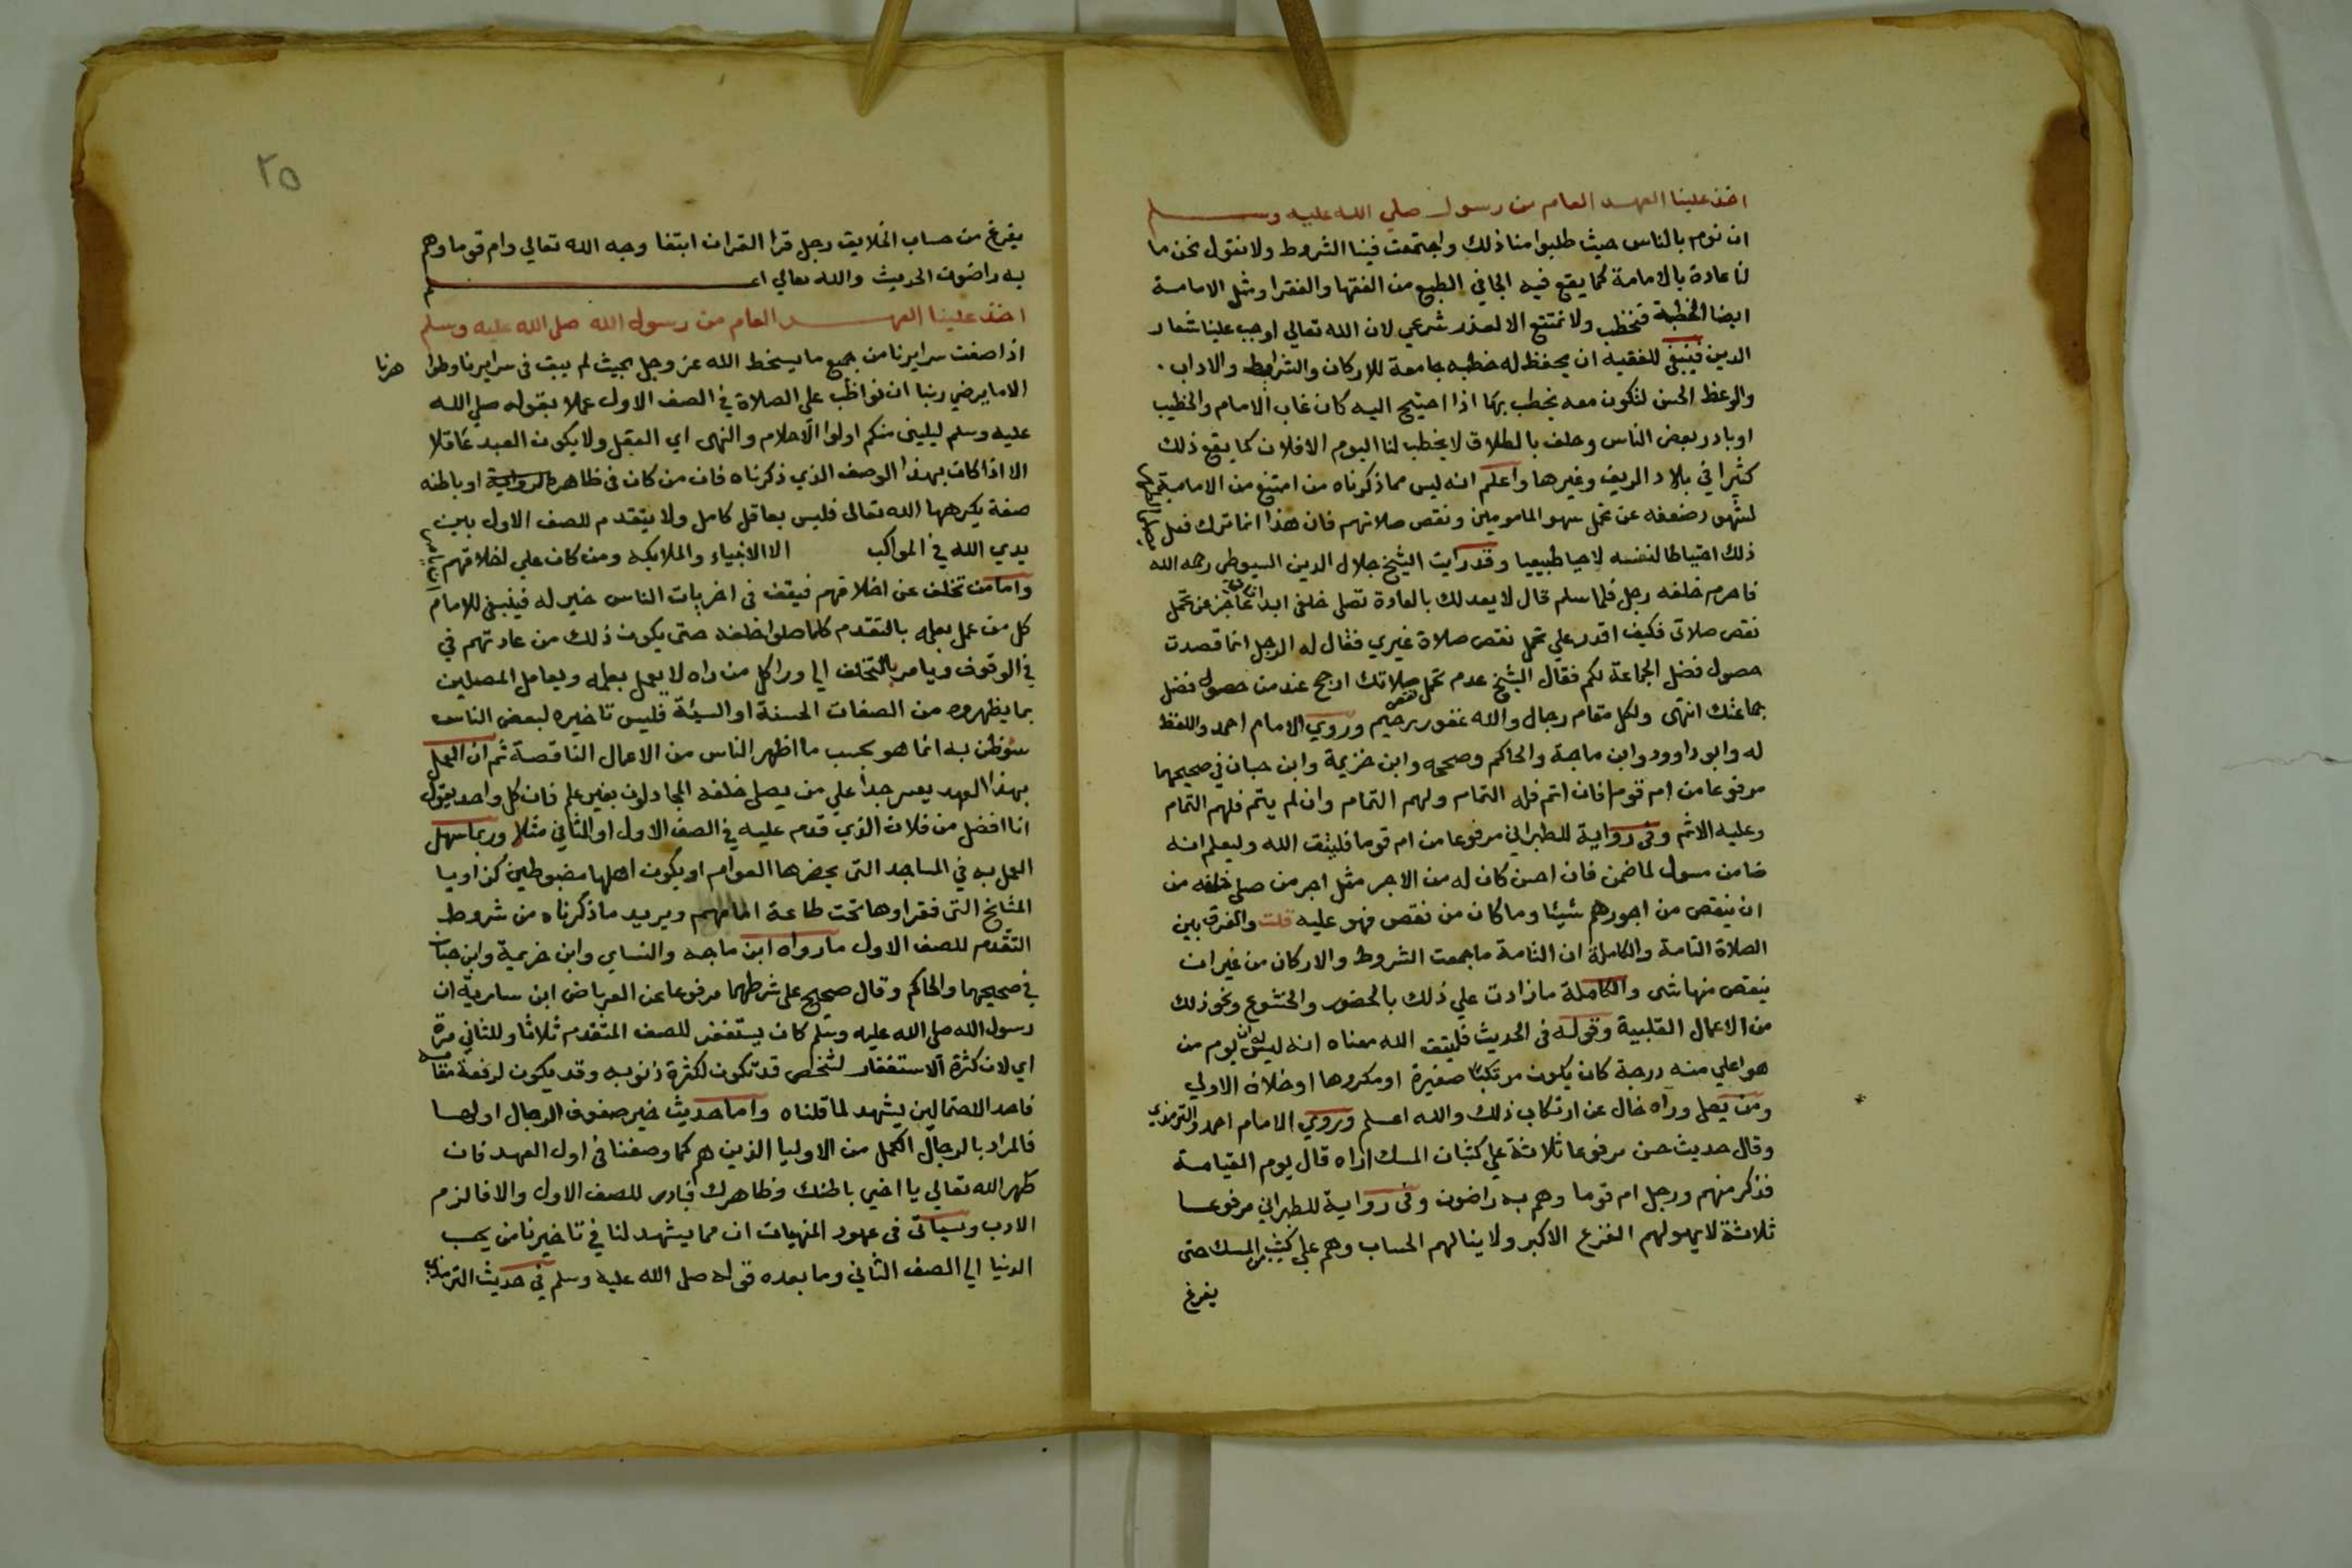 اخذ علينا العهد العام من رسول صلي الله عليه وسلم
ان نوم بالناس حيث طلبوا منا ذلك واجتمعت فينا الشروط ولا نقول نحن ما
لنا عادة بالامامة كما يقع فيه الجافي الطبع من الفقها والفقرا ومثل الامامة
ايضا الخطبة فنخطب ولا نمتنع الا لعذر شرعي لان الله تعالي اوجب علينا شعار
الدين فينبغي للفقيه ان يحفظ له خطبه جامعة للاركان والشرايط والاداب .
والوعظ الحسن لتكون معه يخطب بها اذا احتيج اليه كان غاب الامام والخطيب
او بادر بعض الناس وحلف بالطلاق لا يخطب لنا اليوم الا فلان كما يقع ذلك
كثيرا في بلاد الريف وغيرها واعلم انه ليس مما ذكرناه من امتنع من الامامة
لشهود ضعفه عن تحمل سهو المامومين ونقص صلاتهم فان هذا انما ترك فعل
ذلك احتياطا لنفسه لا حيا طبيعيا وقد رايت الشيخ جلال الدين السيوطي رحمه الله
فاحرم خلفه رجل فلما سلم قال لا يعد لك بالعادة تصلي خلفي ابدا عاجز عن تحمل
نقص صلاتي فكيف اقدر علي تحمل نقص صلاة غيري فقال له الرجل انما قصدت
حصول فضل الجماعة لكم فقال الشيخ عدم تحمل نقص صلاتك ارجح عند من حصول فضل
جماعتك انتهي ولكل مقام رجال والله غفور رحيم وروي الامام احمد واللفظ
له وابو داوود وابن ماجة والحاكم وصححه وابن خزيمة وابن حبان في صحيحهما
مرفوعا من ام قوما فان اتم فله التمام ولهم التمام وان لم يتم فلهم التمام
وعليه الاثم وفي رواية للطبراني مرفوعا من ام قوما فليتق الله وليعلم انه
ضامن مسول لما ضمن فان احسن كان له من الاجر مثل اجر من صلي خلفه من
ان ينقص من اجورهم شيئا وما كان من نقص فهو عليه قلت والفرق بين
الصلاة التامة والكاملة ان التامة ما جمعت الشروط والاركان من غير ان
ينقص منها شي والكاملة ما زادت علي ذلك بالحضور والخشوع ونحو ذلك
من الاعمال القلبية وقوله في الحديث فليتق الله معناه انه ليس له ان يوم من
هو اعلي منه درجة كان يكون مرتكبا صغيرة او مكروها او خلاف الاولي
ومن يصلي وراه خال عن ارتكاب ذلك والله اعلم وروي الامام احمد والترمذي
وقال حديث حسن مرفوعا ثلاثة علي كثبان المسك اراه قال يوم القيامة
فذكر منهم ورجل ام قوما وهم به راضون وفي رواية للطبراني مرفوعا
ثلاثة لا يهولهم الفزع الاكبر ولا ينالهم الحساب وهم علي كثيب من المسك حتي
يفرغ
٢٥
يفرغ من حساب الخلايق رجل قرا القران ابتغا وجه الله تعالي وام قوما وهم
به راضون الحديث والله تعالي اعلم
اخذ علينا العهد العام من رسول الله صلي الله عليه وسلم
اذا صفت سرايرنا من جميع ما يسخط الله عز وجل بحيث لم يبق في سرايرنا وظوا
هرنا
الا ما يرضي ربنا ان نواظب علي الصلاة في الصف الاول عملا بقوله صلي الله
عليه وسلم ليليني منكم اولوا الاحلام والنهي اي العقل ولا يكون العبد عاقلا
الا اذا كان بهذا الوصف الذي ذكرناه فان من كان في ظاهره او باطنه
صفة يكرهها الله تعالي فليس بعاقل كامل ولا يتقدم للصف الاول بين
يدي الله في المواكب الا الانبياء والملايكه ومن كان علي اخلاقهم
واما من تخلف عن اخلاقهم فيقف في اخريات الناس خير له فينبغي للامام
كل من عمل بعلمه بالتقدم كلما صلوا خلفه حتي يكون ذلك من عادتهم في
في الوقوف ويامر بالتخلف الي ورا كل من راه لا يعمل بعلمه ويعامل المصلين
بما يظهروه من الصفات الحسنة او السيئة فليس تاخيره لبعض الناس
سوظن به انما هو بحسب ما اظهر الناس من الاعمال الناقصة ثم ان العمل
بهذا العهد يعسر جدا علي من يصلي خلفه المجادلون بغير علم فان كل واحد يقول
انا افضل من فلان الذي قدم عليه في الصف الاول او الثاني مثلا وربما سهل
العمل به في المساجد التي يحضرها العوام او يكون اهلها مضبوطين كزاويا
المشايخ التي فقراوها تحت طاعة امامهم ويريد ما ذكرناه من شروط
التقدم للصف الاول ما رواه ابن ماجه والنساي وابن خزيمة وابن حبان
في صحيحهما والحاكم وقال صحيح علي شرطهما مرفوعا عن العرباض ابن سارية ان
رسول الله صلي الله عليه وسلم كان يستغفر للصف المتقدم ثلاثا وللثاني مرة
اي لان كثرة الاستغفار لشخص قد تكون لكثرة ذنوبه وقد يكون لرفعة مقامه
فاحد الاحتمالين يشهد لما قلناه واما حديث خير صفوف الرجال اولها
فالمراد بالرجال الكمل من الاوليا الذين هم كما وصفنا في اول العهد فان
طهر الله تعالي يا اخي باطنك وظاهرك فبادر للصف الاول والا فالزم
الادب وسياتي في عهود المنهيات ان مما يشهد لنا في تاخيرنا من يحب
الدنيا الي الصف الثاني وما بعده قوله صلي الله عليه وسلم في حديث الترمذي